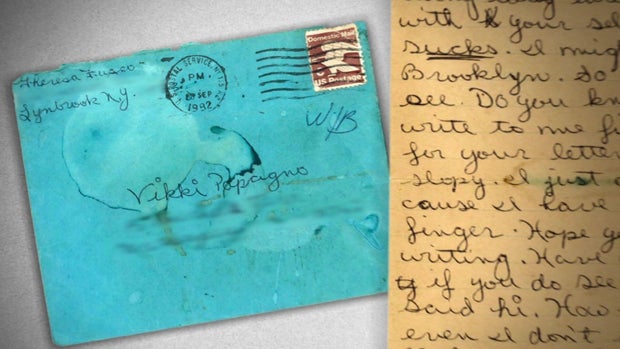 Theresa Fusco
Lynbrook NY.
U.S. POSTAL SERVICE, NY
PM
SEP
1982
Domestic Mail
US Postage
W/B
Vikki Papagno
with your sel
sucks. I mig
Brooklyn. So
see. Do you kn
write to me fi
for your letter
slopy. I just
cause I have
finger. Hope ye
writing. Have
if you do see
said hi. How
even I don't